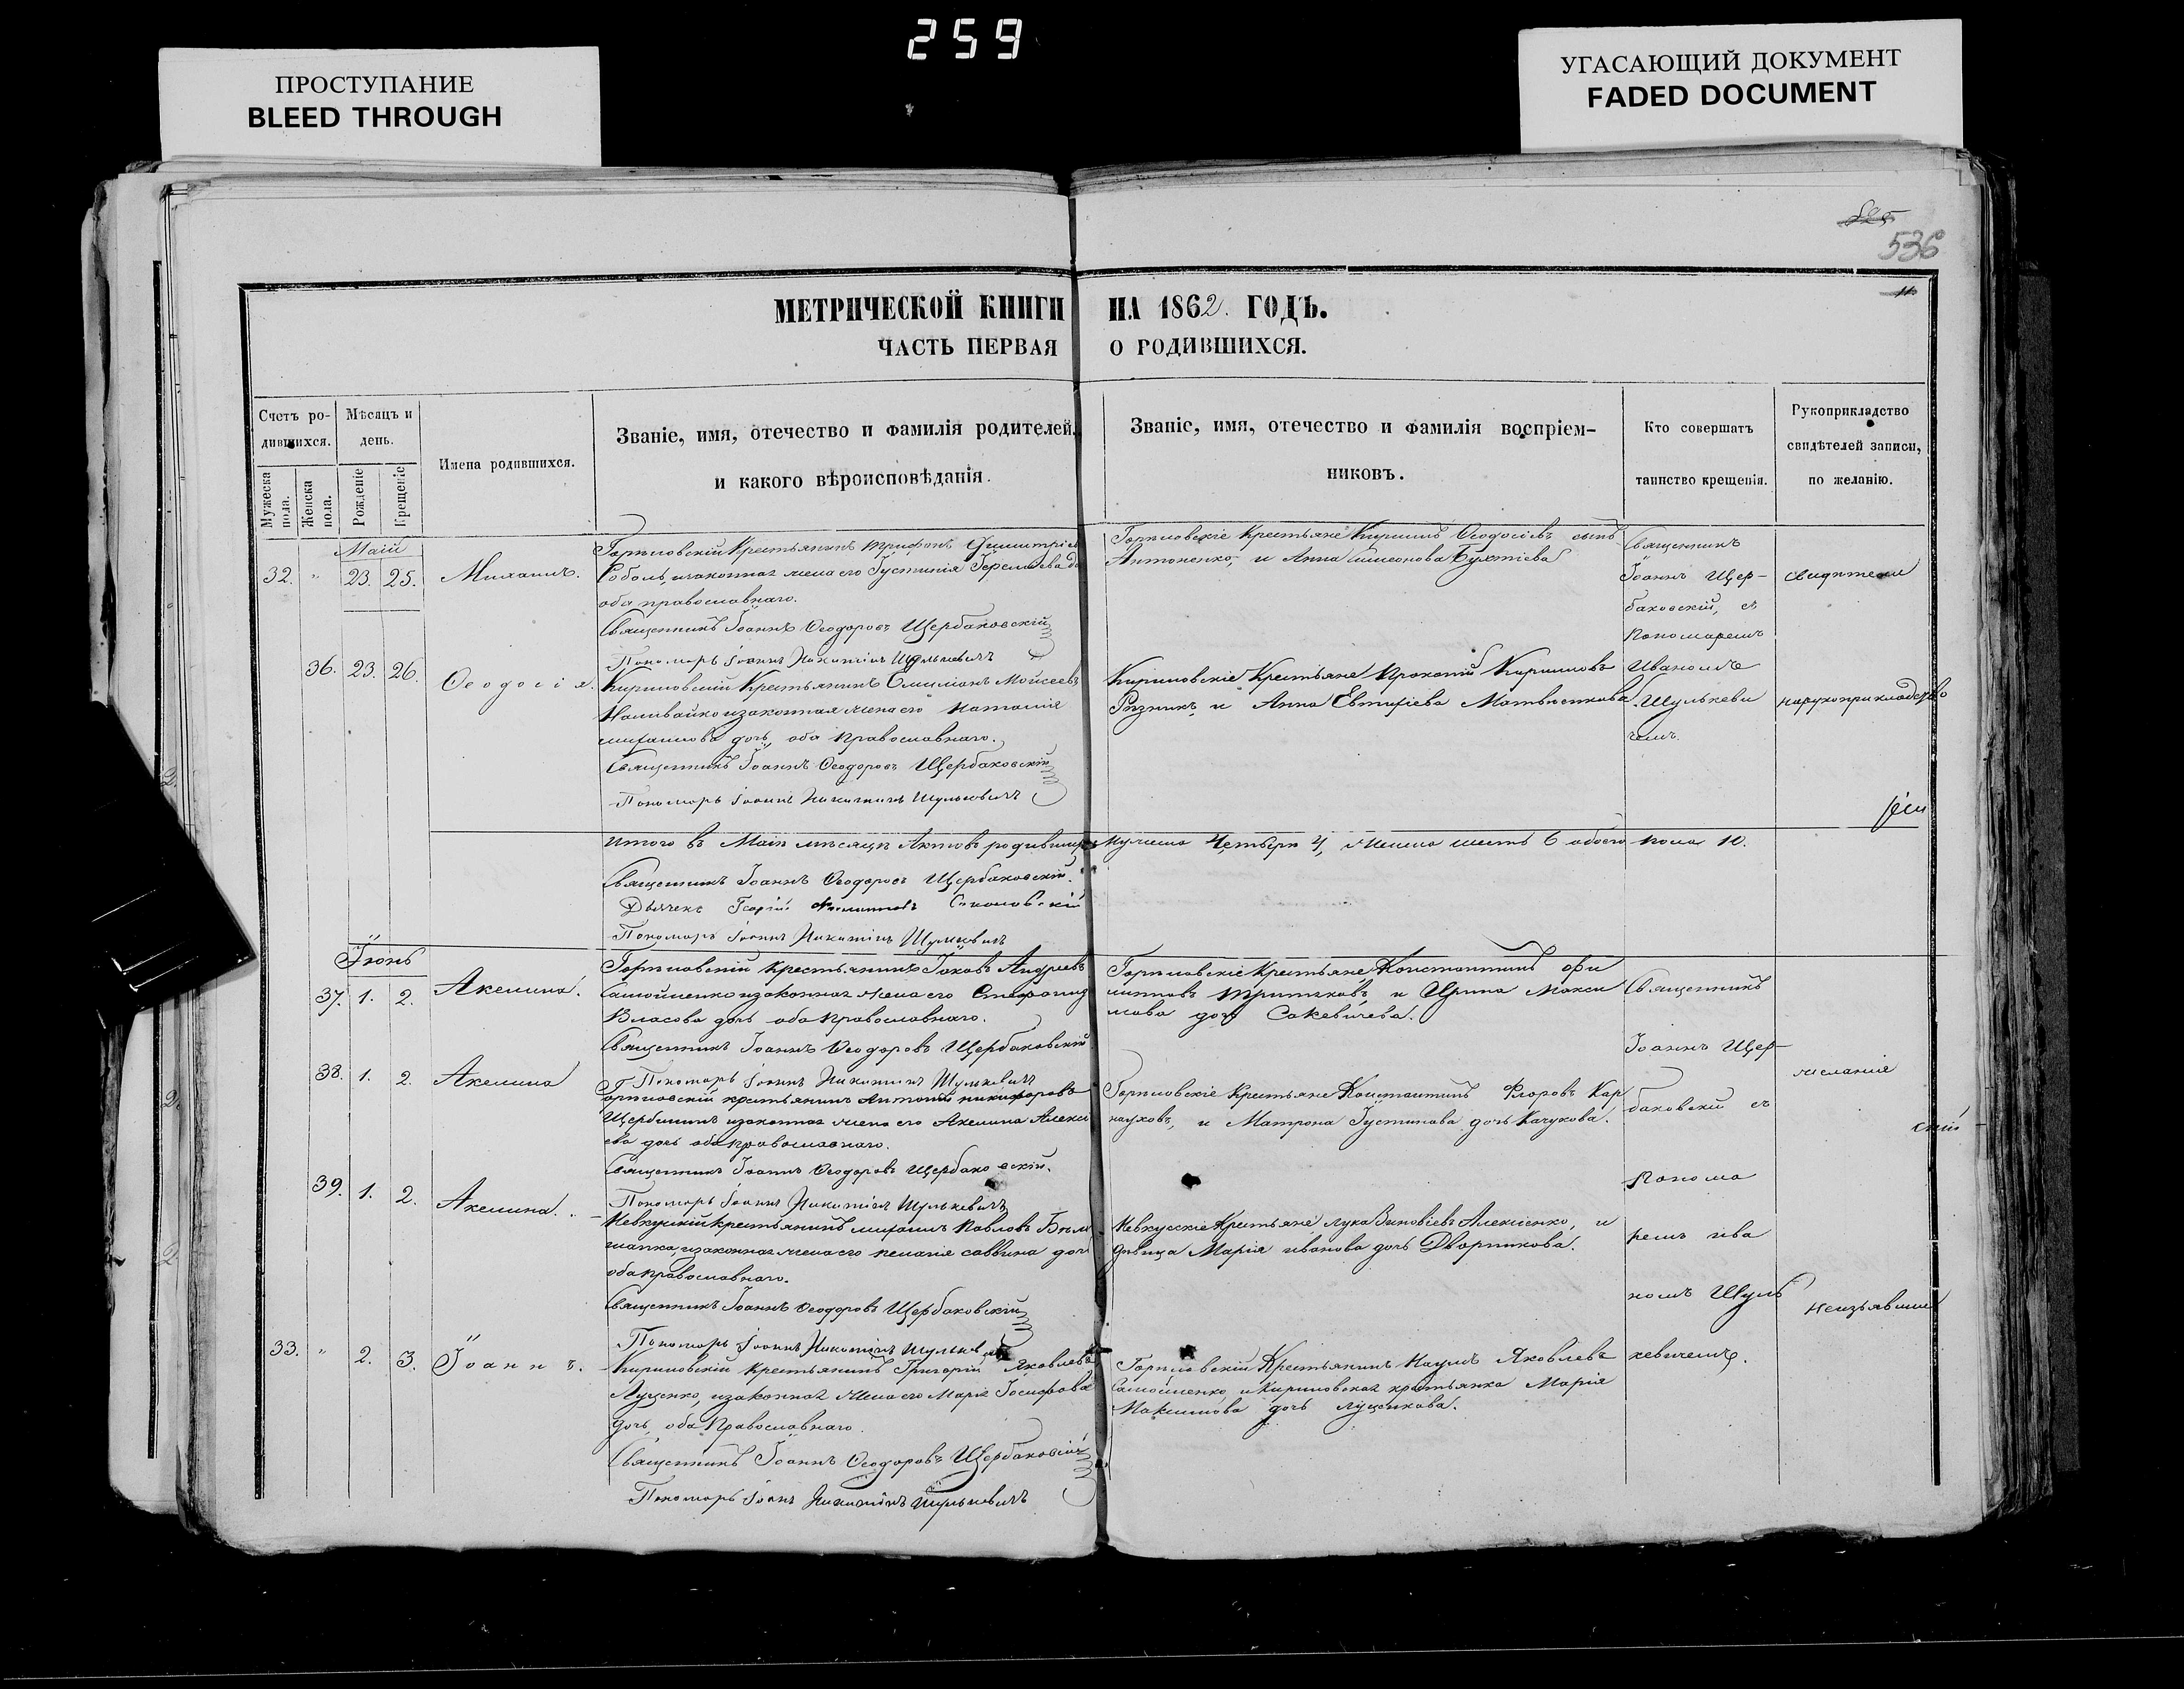 259
ПРОСТУПАНИЕ
BLEED THROUGH
УГАСАЮЩИЙ ДОКУМЕНТ
FADED DOCUMENT
525
536
МЕТРИЧЕСКОЙ КНИГИ НА 1862. ГОДЪ.
ЧАСТЬ ПЕРВАЯ О РОДИВШИХСЯ.
Счетъ ро-
дившихся.
Мужеска
пола.
Женска
пола.
Мѣсяцъ и
день.
Рожденіе
Крещеніе
Имена родившихся.
Званіе, имя, отечество и фамилія родителей,
и какого вѣроисповѣданія.
Званіе, имя, отечество и фамилія воспріем-
никовъ.
Кто совершатъ
таинство крещенія.
Рукоприкладство
свидѣтелей записи,
по желанію.
Маій
32. " 23. 25. Михаилъ.
Крестьянинъ Трифонъ
Роболь, и законная жена его Густинія
оба православнаго.
Священникъ Іоаннъ Ѳеодоровъ Щербаковскій
Пономарь Іоаннъ Никитинъ Шулькевичъ
Крестьяне Кириллъ Ѳеодосіевъ сынъ
Антоненко, и Анна Симеонова
Священникъ
Іоаннъ Щер-
баковскій, съ
пономаремъ
Иваномъ
Шулькеви
чемъ.
свидѣтели
36. 23. 26. Ѳеодосія.
Кириловскій Крестьянинъ Емиліанъ Моисеевъ
Наливайко и законная жена его Наталія
Михаилова дочь, оба Православнаго.
Священникъ Іоаннъ Ѳеодоровъ Щербаковскій
Пономарь Іоаннъ Никитинъ Шулькевичъ
Кириловскіе Крестьяне Прокопій Кириловъ
Рѣзникъ, и Анна Евтихіева Матвѣенкова
на рукоприкладство
Итого въ Маіи мѣсяцѣ Актовъ родивших Мужеска Четыри 4, Женска шесть 6 обоего пола 10.
Священникъ Іоаннъ Ѳеодоровъ Щербаковскій.
Дьячекъ Георгій
Пономарь Іоаннъ Никитинъ Шулькевичъ
Іюнь
37. 1. 2. Акелина.
Крестьянинъ Іаковъ Андреевъ
Самойленко и законная жена его Стефанида
Власова дочь оба Православнаго.
Священникъ Іоаннъ Ѳеодоровъ Щербаковскій
Пономарь Іоаннъ Никитинъ Шулькевичъ
Крестьяне Константинъ Фи
липповъ Третьяковъ, и Ирина Макси
мова дочь Сакевичева.
Священникъ
Іоаннъ Щер-
баковскій съ
Понома
ремъ Ива
номъ Шуль
кевичемъ.
38. 1. 2. Акелина
крестьянинъ Антоній Никифоровъ
Щербининъ и законная жена его Акелина Алекси
ева дочь оба Православнаго.
Священникъ Іоаннъ Ѳеодоровъ Щербаковскій.
Пономарь Іоаннъ Никитинъ Шулькевичъ
Крестьяне Константинъ Флоровъ Кар
науховъ, и Матрона Густинова дочь Качукова.
желаніе
39. 1. 2. Акелина.
крестьянинъ Михаилъ Павловъ
шапка, и законная жена его Меланія Саввина дочь
оба Православнаго.
Священникъ Іоаннъ Ѳеодоровъ Щербаковскій
Пономарь Іоаннъ Никитинъ Шулькевичъ
Крестьяне, Лука Зиновіевъ Алексіенко, и
дѣвица Марія Иванова дочь Дворникова.
неизъявили
33. " 2. 3. Іоаннъ.
Кириловскій крестьянинъ Григорій Яковлевъ
Луценко, и законная жена его Марія Іосифова
дочь, оба Православнаго.
Священникъ Іоаннъ Ѳеодоровъ Щербаковскій
Пономарь Іоаннъ Никитинъ Шулькевичъ
Крестьянинъ Наумъ Яковлевъ
Самойленко, и Кириловская крестьянка Марія
Максимова дочь Луценкова.